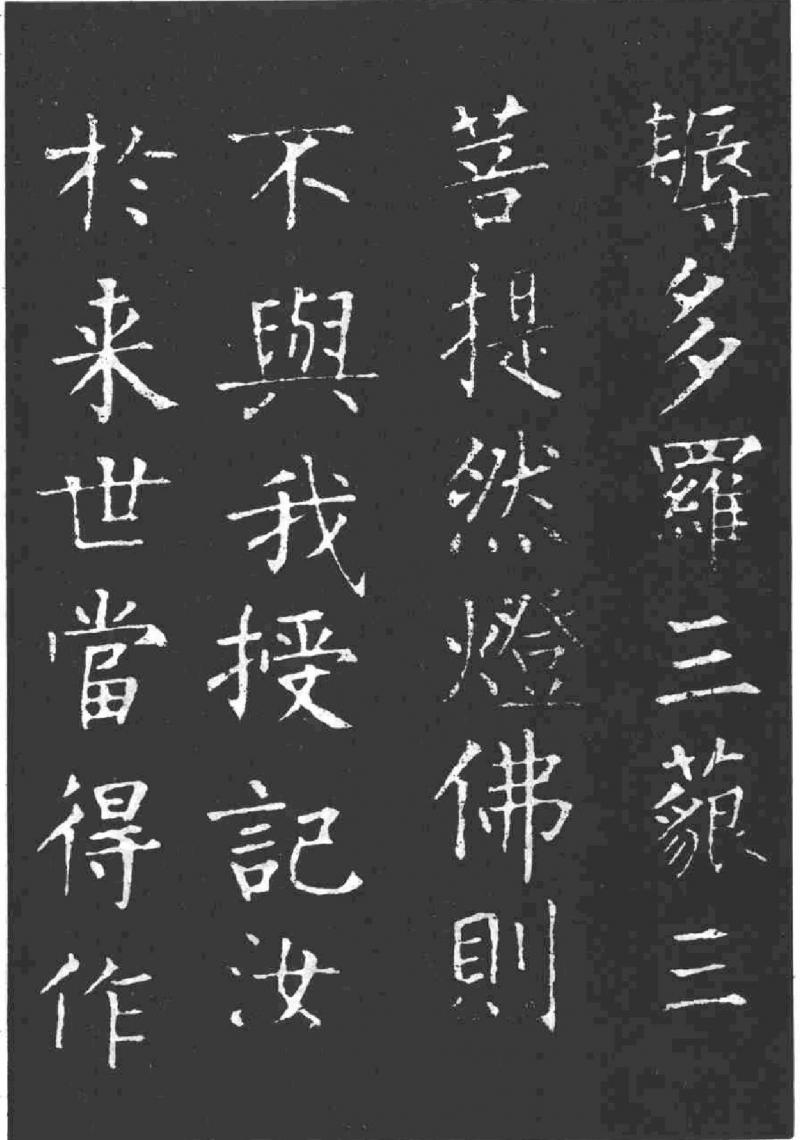 耨多羅三藐三
菩提然燈佛則
不與我授記汝
於来世當得作